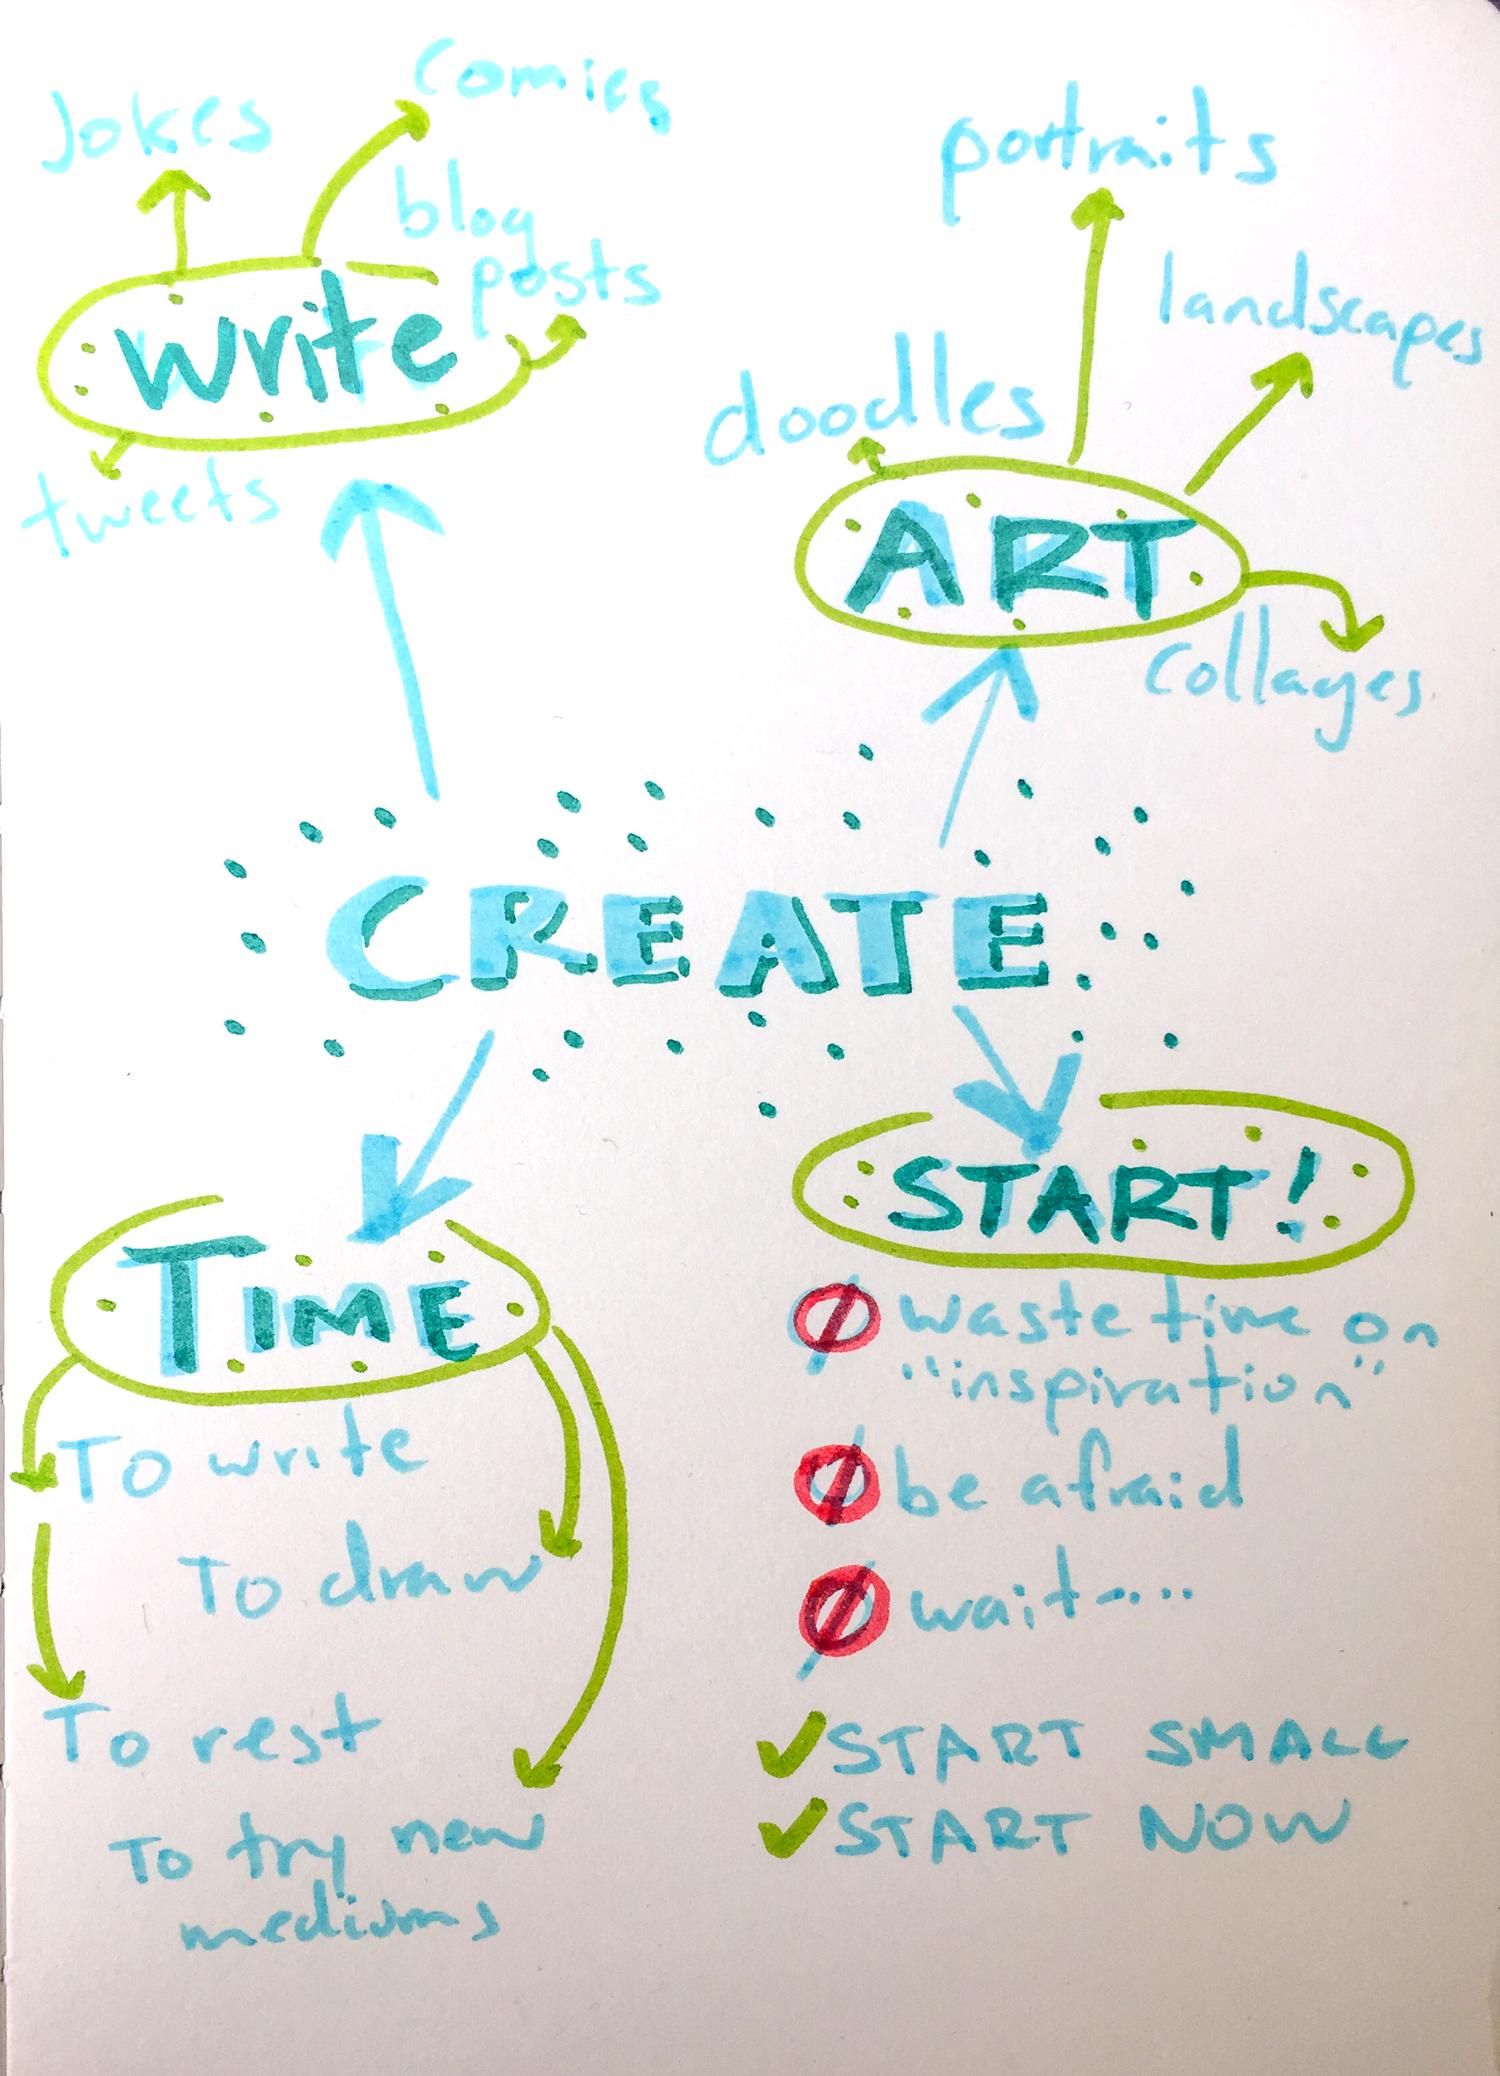 Jokes
comics
blog
posts
write
tweets
portraits
landscapes
doodles
ART
collages
CREATE
TIME
To write
To draw
To rest
To try new
mediums
START!
waste time on
"inspiration"
be afraid
wait....
START SMALL
START NOW